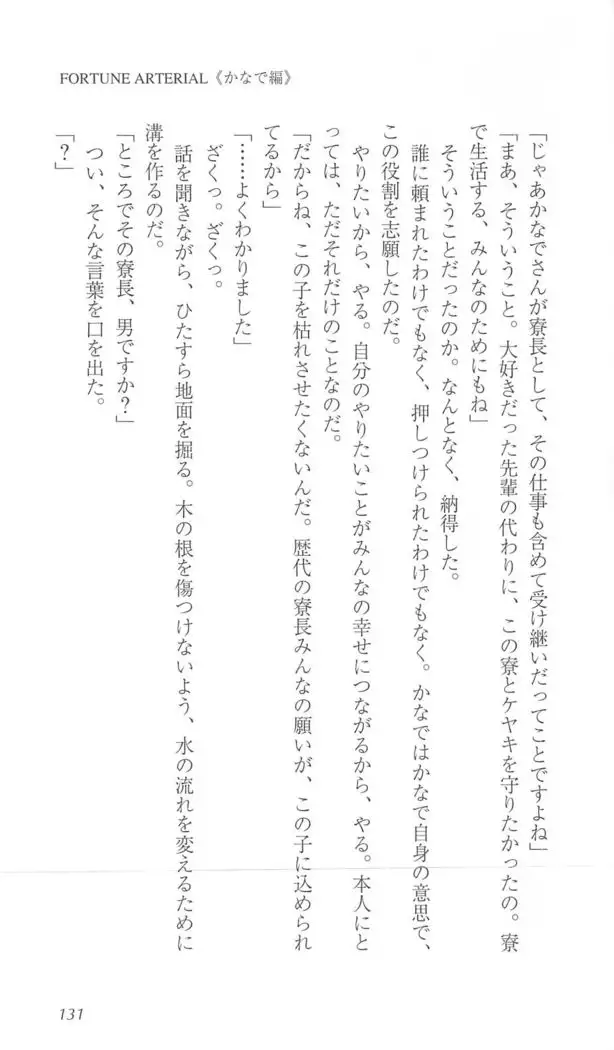 FORTUNE ARTERIAL《かなで編》
「じゃあかなでさんが寮長として、その仕事も含めて受け継いだってことですよね」
「まあ、そういうこと。大好きだった先輩の代わりに、この寮とケヤキを守りたかったの。寮
で生活する、みんなのためにもね」
そういうことだったのか。なんとなく、納得した。
誰に頼まれたわけでもなく、押しつけられたわけでもなく。かなではかなで自身の意思で、
この役割を志願したのだ。
やりたいから、やる。自分のやりたいことがみんなの幸せにつながるから、やる。本人にと
っては、ただそれだけのことなのだ。
「だからね、この子を枯れさせたくないんだ。歴代の寮長みんなの願いが、この子に込められ
てるから」
「……よくわかりました」
ざくっ。ざくっ。
話を聞きながら、ひたすら地面を掘る。木の根を傷つけないよう、水の流れを変えるために
溝を作るのだ。
「ところでその寮長、男ですか？」
つい、そんな言葉を口を出た。
「？」
131